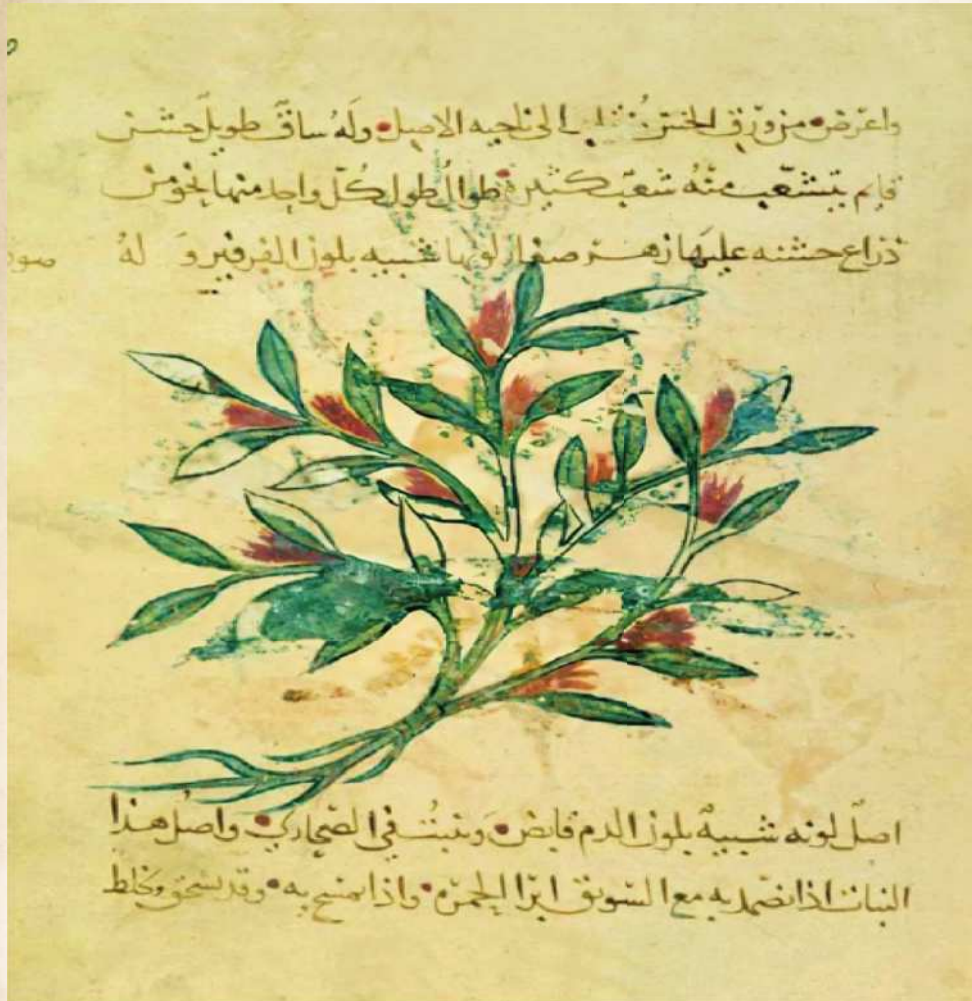 واعرض من ورق الخس تنقلب الى ناحيه الاصل وله ساق طويل خشن
قايم يتشعب منه شعب كثيره طوال طول كل واحد منها نحو من
ذراع خشنه عليها زهر صغار لونها شبيه بلون الفرفير وله
اصل لونه شبيه بلون الدم قابض وينبت في الصحاري واصل هذا
النبات اذا تضمد به مع السويق ابرا الحمره واذا تمسح به وقد يسحق ويخلط